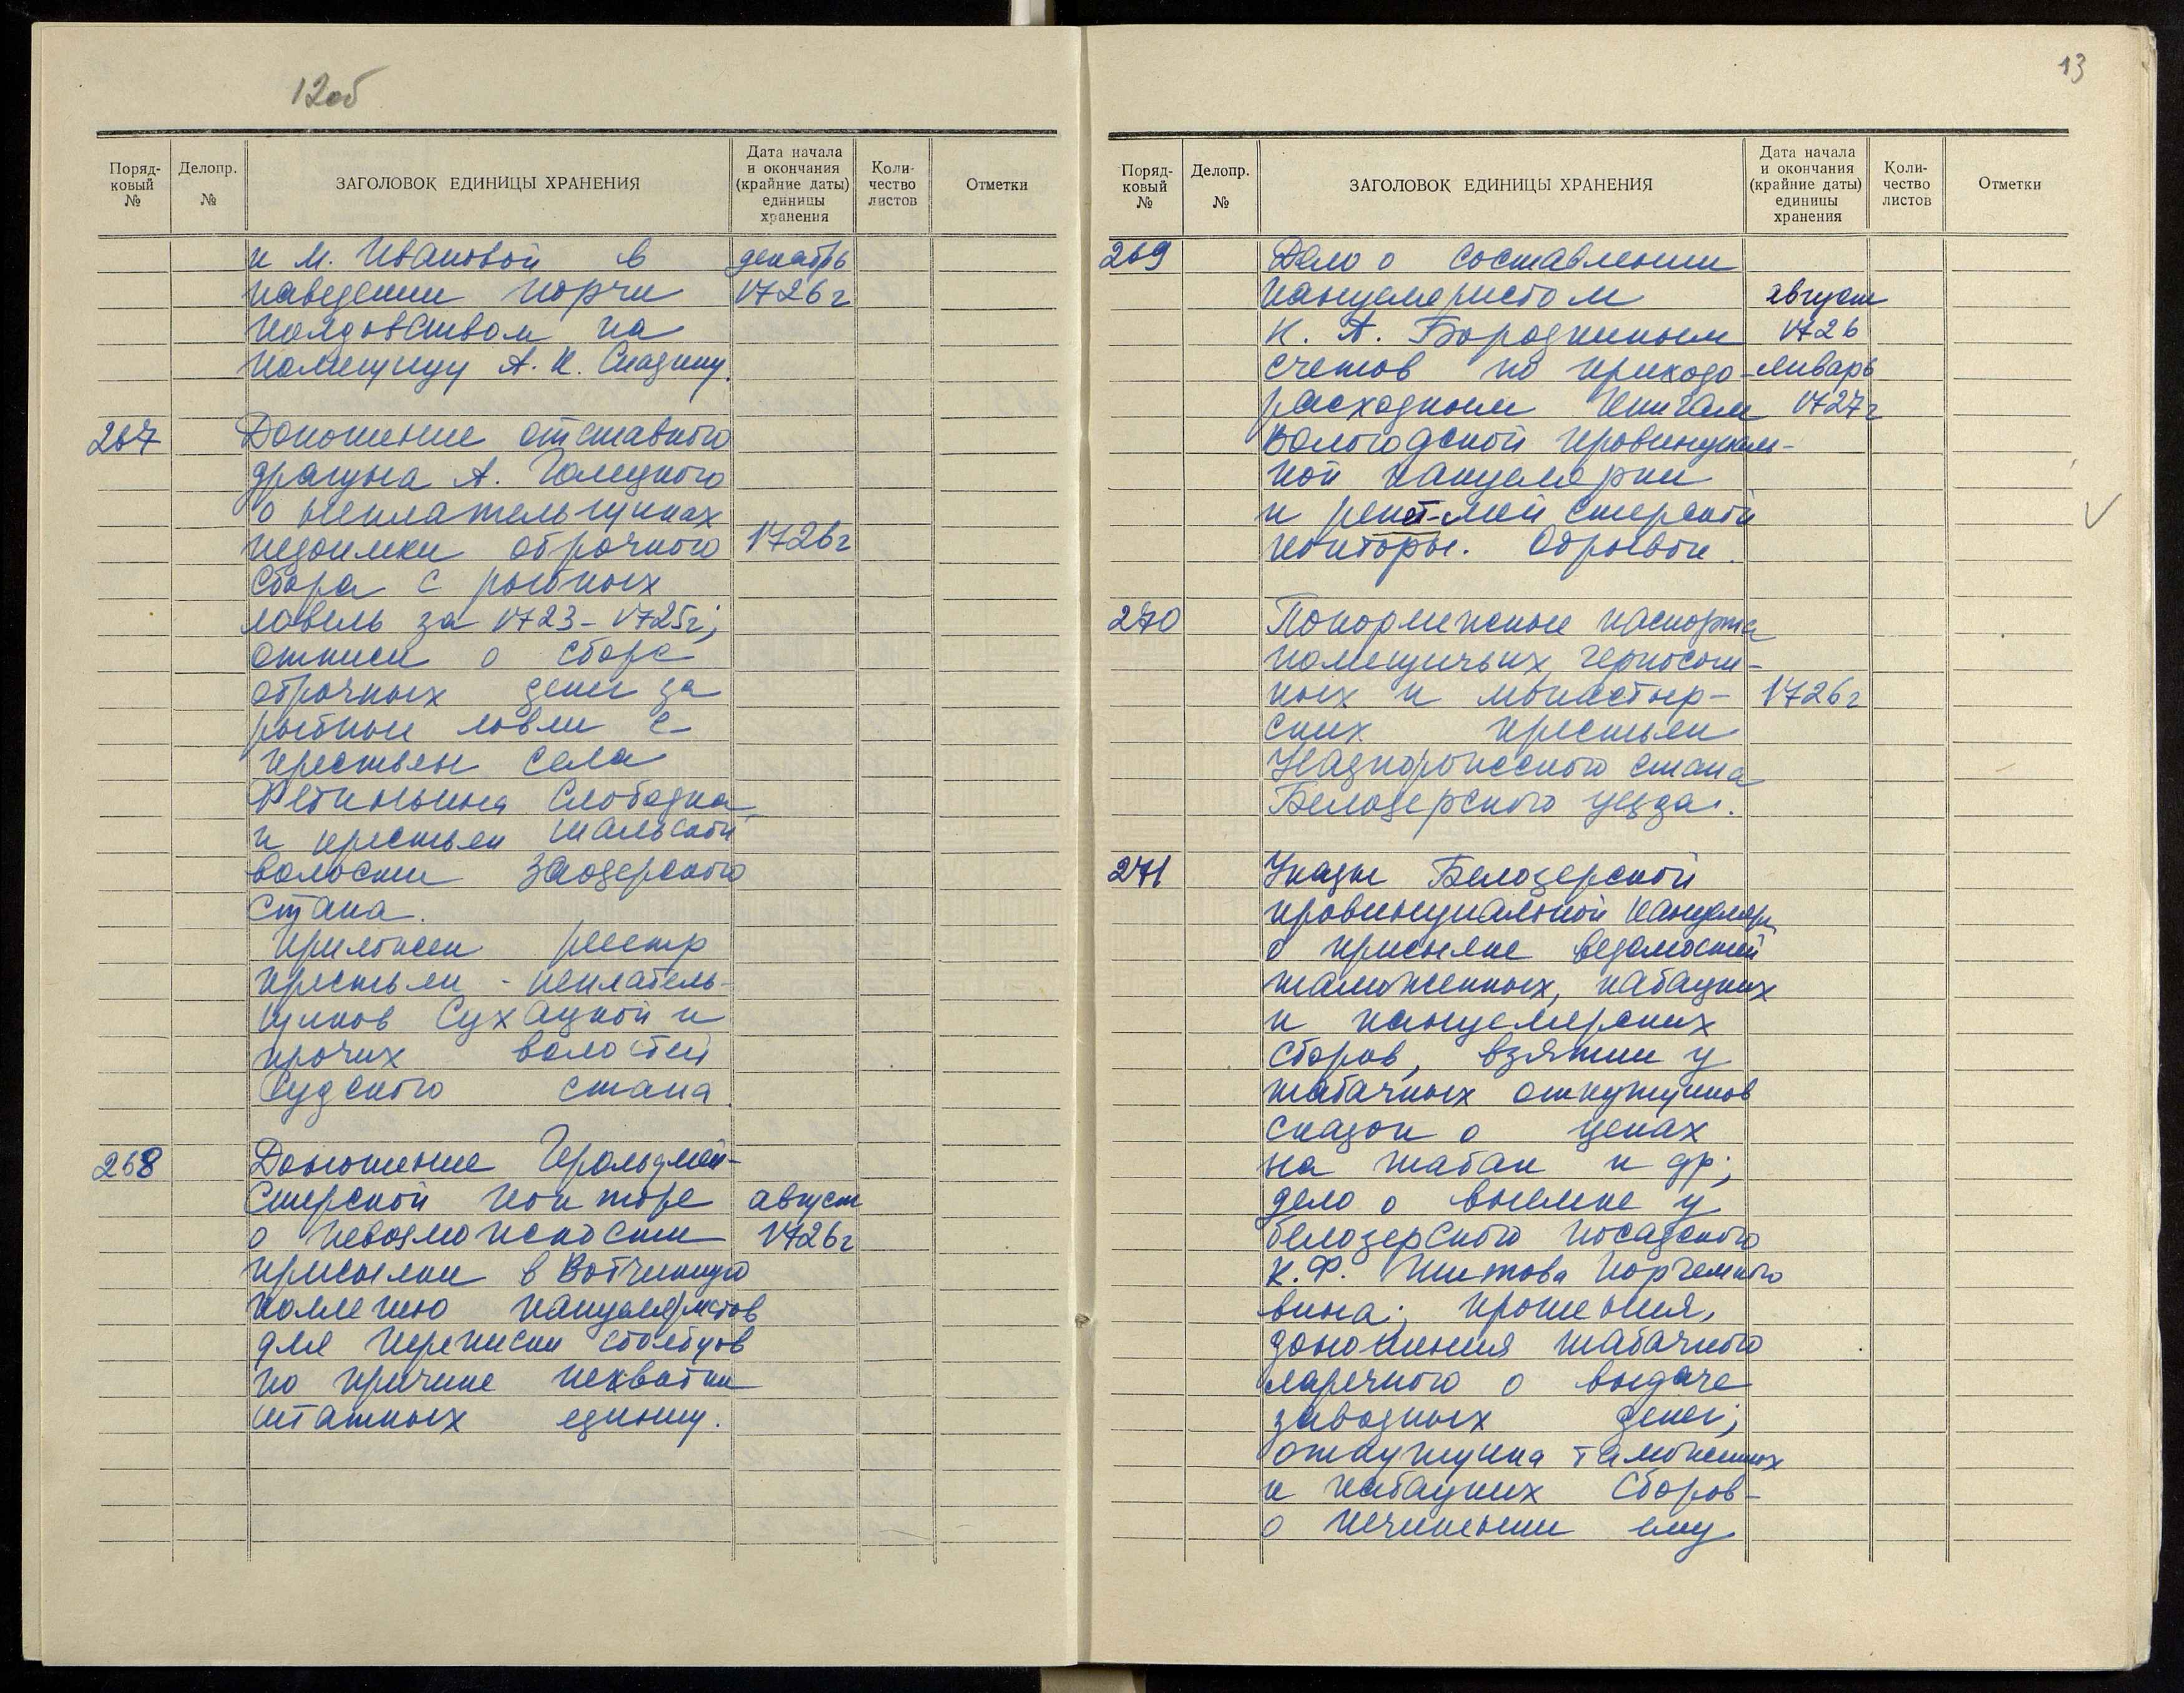 12об
Поряд-
ковый
№
Делопр.
№
ЗАГОЛОВОК ЕДИНИЦЫ ХРАНЕНИЯ
Дата начала
и окончания
(крайние даты)
единицы
хранения
Коли-
чество
листов
Отметки
и М. Ивановой в декабрь
наведении порчи 1726г
колдовством на
помещицу А. К.
267 Доношение отставного
драгуна А. Голецкого
о неплательщиках
недоимки оброчного 1726г
сбора с рыбных
ловель за 1723-1725г;
отписи о сборе
оброчных денег за
рыбные ловли с
крестьян села
Слободка
и крестьян Шальской
волости Заозерского
стана.
Приложен реестр
крестьян - неплатель-
щиков Сухацкой и
прочих волостей
Судского стана
268 Доношение Герольдмей-
стерской конторе август
о невозможности 1726г
присылки в Вотчинную
коллегию канцеляристов
для переписки столбцов
по причине нехватки
штатных единиц.
13
Поряд-
ковый
№
Делопр.
№
ЗАГОЛОВОК ЕДИНИЦЫ ХРАНЕНИЯ
Дата начала
и окончания
(крайние даты)
единицы
хранения
Коли-
чество
листов
Отметки
269 Дело о составлении
канцеляристом август
К. А. Бородкиным 1726
счетов по приходо- январь
расходным книгам 1727г
Вологодской провинциаль-
ной канцелярии
и рент-мейстерской
конторы. Обрывки.
270 Покормежные паспорта
помещичьих, черносош-
ных и монастыр- 1726г
ских крестьян
Надпорожского стана
Белозерского уезда.
271 Указы Белозерской
провинциальной канцеляр.
о присылке ведомостей
таможенных, кабацких
и канцелярских
сборов, взятии у
табачных откупщиков
сказок о ценах
на табак и др;
дело о выемке у
белозерского посадского
К.Ф. Шитова корчемного
вина; прошения,
доношения табачного
ларечного о выдаче
заводных денег;
откупщика таможенных
и кабацких сборов-
о нечинении ему